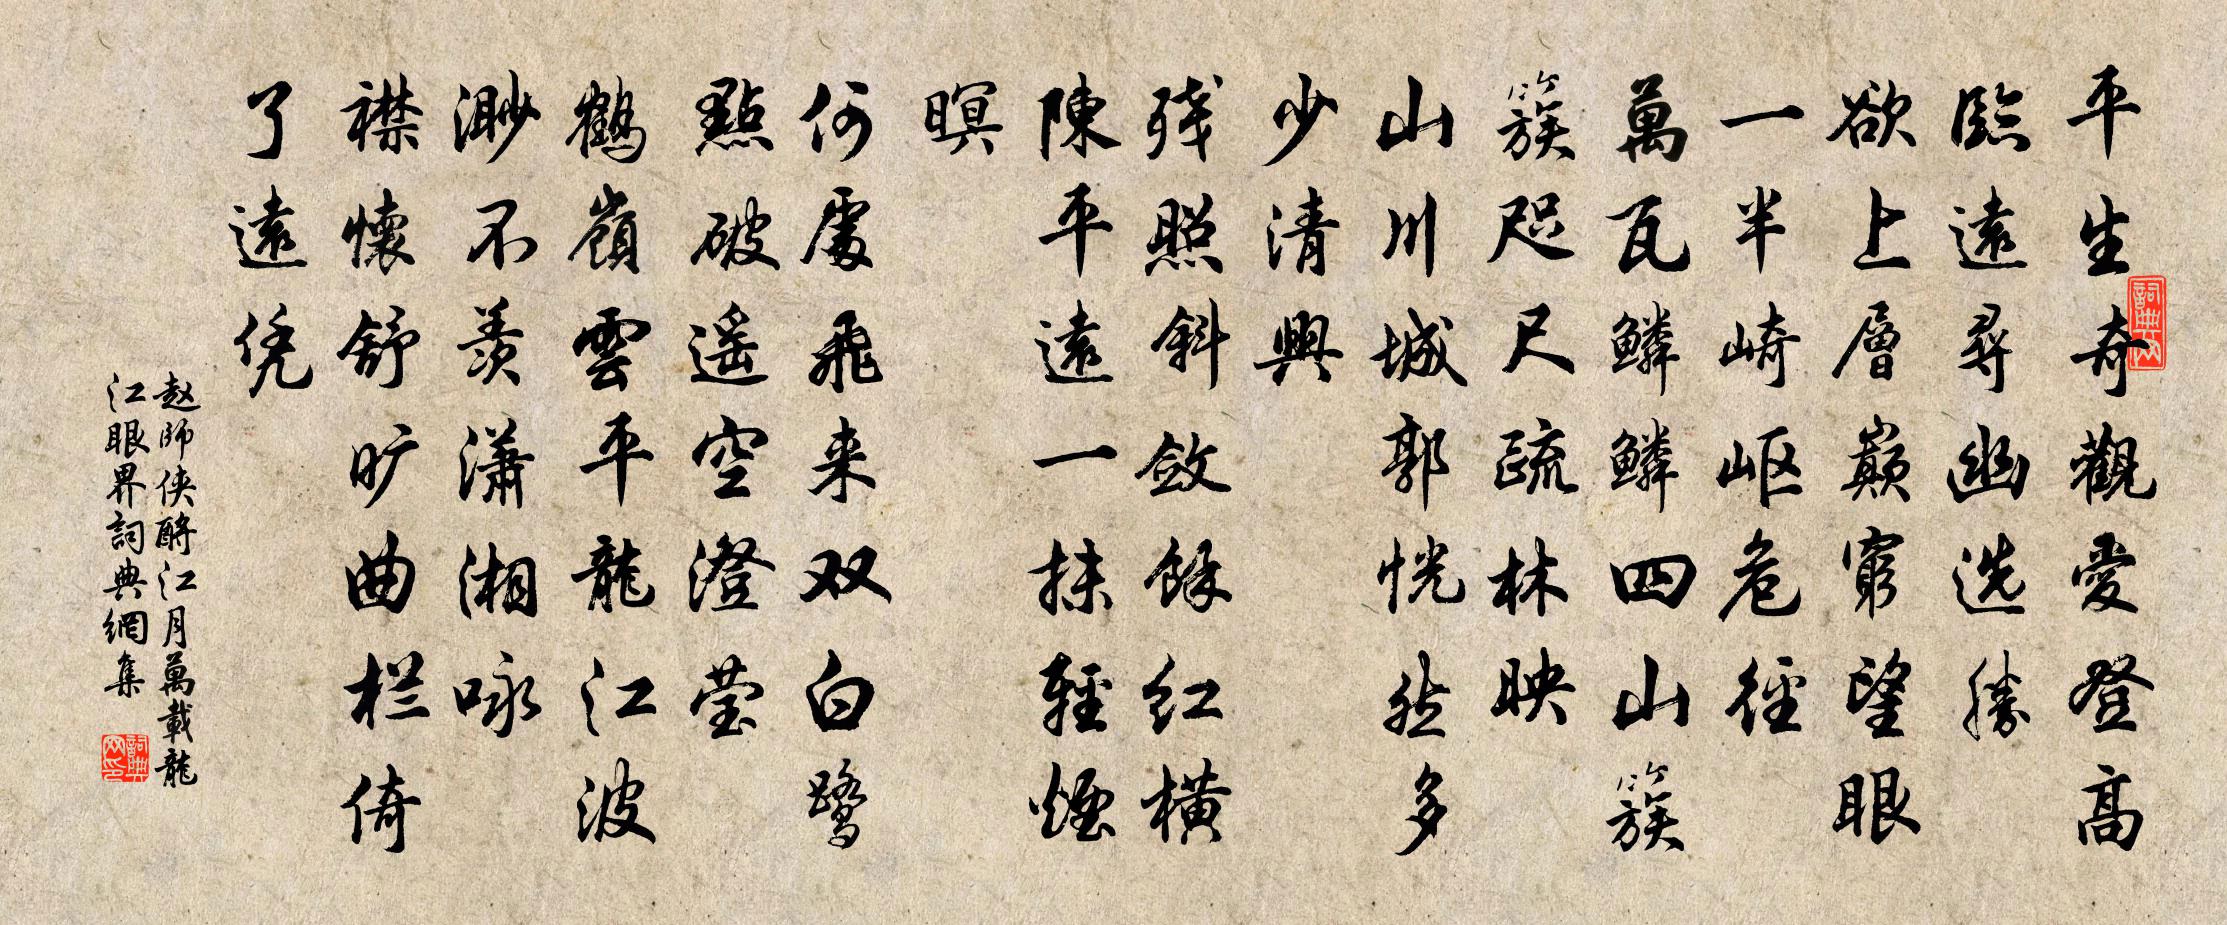 平生奇觀愛登高
臨遠尋幽选勝
欲上層巔窮望眼
一半崎岖危徑
萬瓦鱗鱗四山簇
簇咫尺疏林映
山川城郭恍然多
少清興
残照斜敛餘红橫
陳平遠一抹輕煙
暝
何處飛来双白鹭
點破遥空澄莹
鶴嶺雲平龍江波
渺不羡潇湘咏
襟懷舒旷曲栏倚
了遠凭
赵師侠酹江月萬載龍
江眼界詞典網集
詞典网
詞典网印